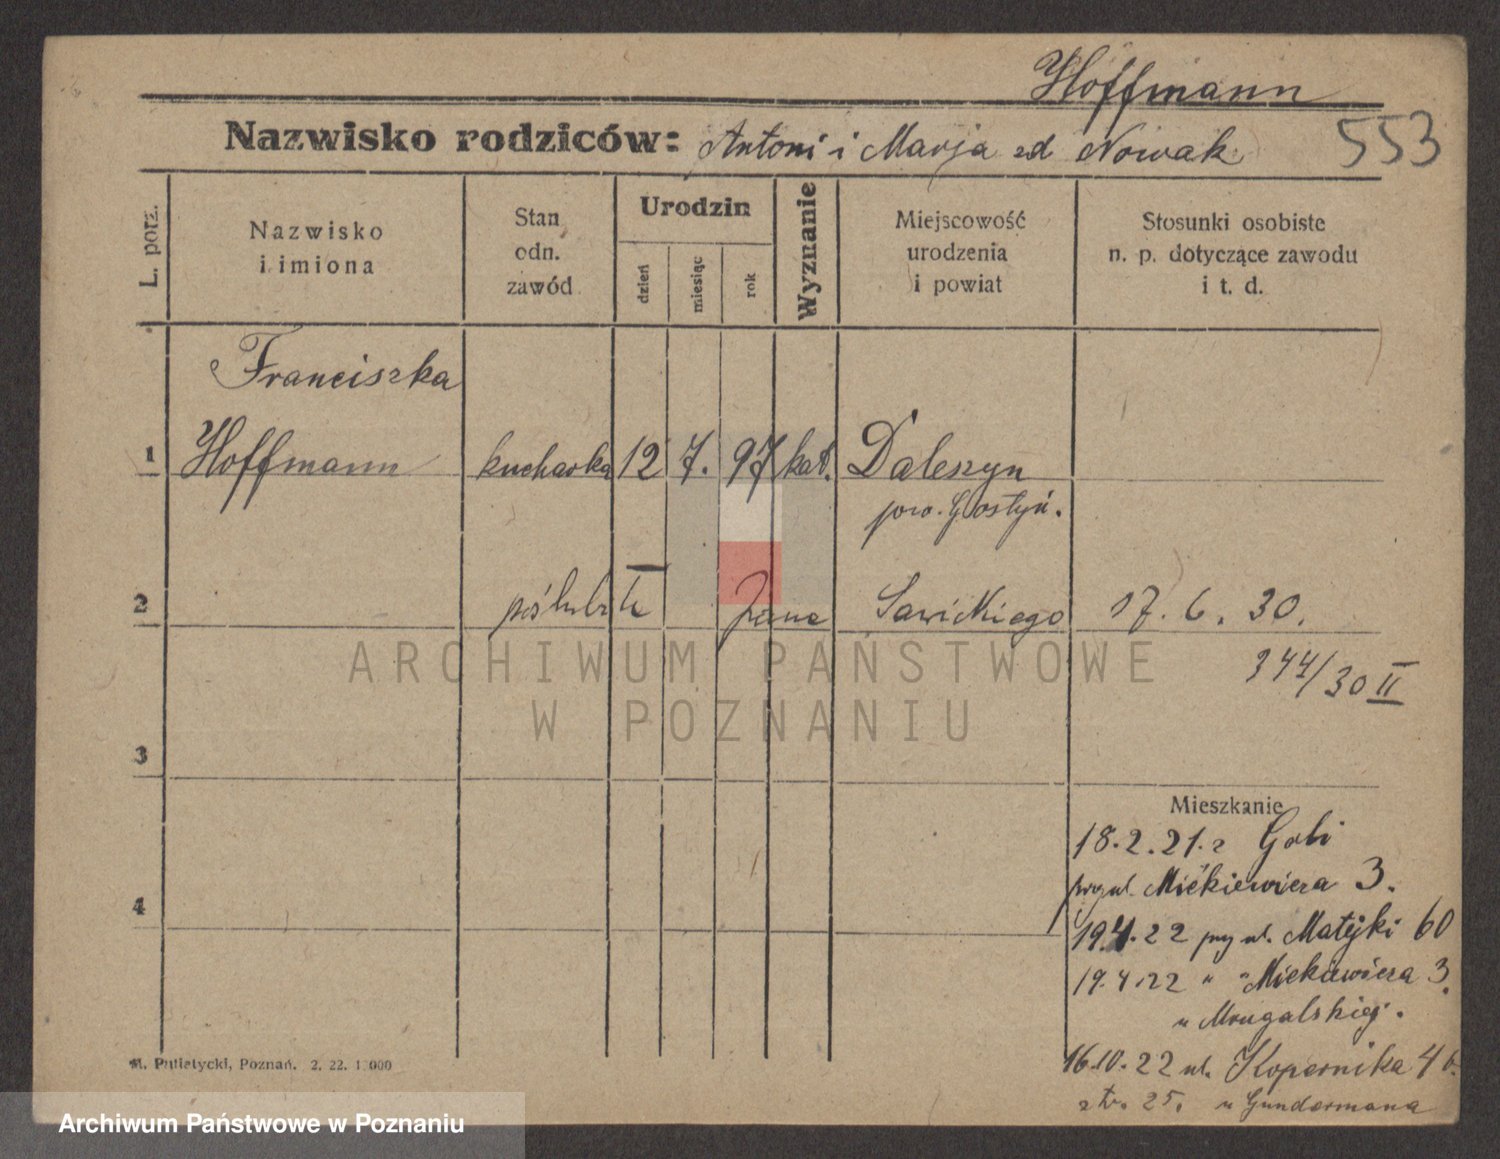 Hoffmann
Nazwisko rodziców: Antoni i Marja zd Nowak 553
L. porz.
Nazwisko
i imiona
Stan
odn.
zawód
Urodzin
dzień
miesiąc
rok
Wyznanie
Miejscowość
urodzenia
i powiat
Stosunki osobiste
n. p. dotyczące zawodu
i t. d.
Franciszka
1 Hoffmann kucharka 12 7. 97 kat. Daleszyn
pow. Gostyń.
2 poślubiła Jana Sawickiego 17. 6. 30.
344/30 II
3
Mieszkanie
18.2.21. z
4 Mickiewicza 3.
19.4.22 przy ul. Matejki 60
19.4.22 " " Mickiewicza 3.
u Mrugalskiej.
16.10.22 ul. Kopernika 4
25. u Gundermana
M. Putiatycki, Poznań. 2. 22. 1 000
ARCHIWUM PAŃSTWOWE
W POZNANIU
Archiwum Państwowe w Poznaniu